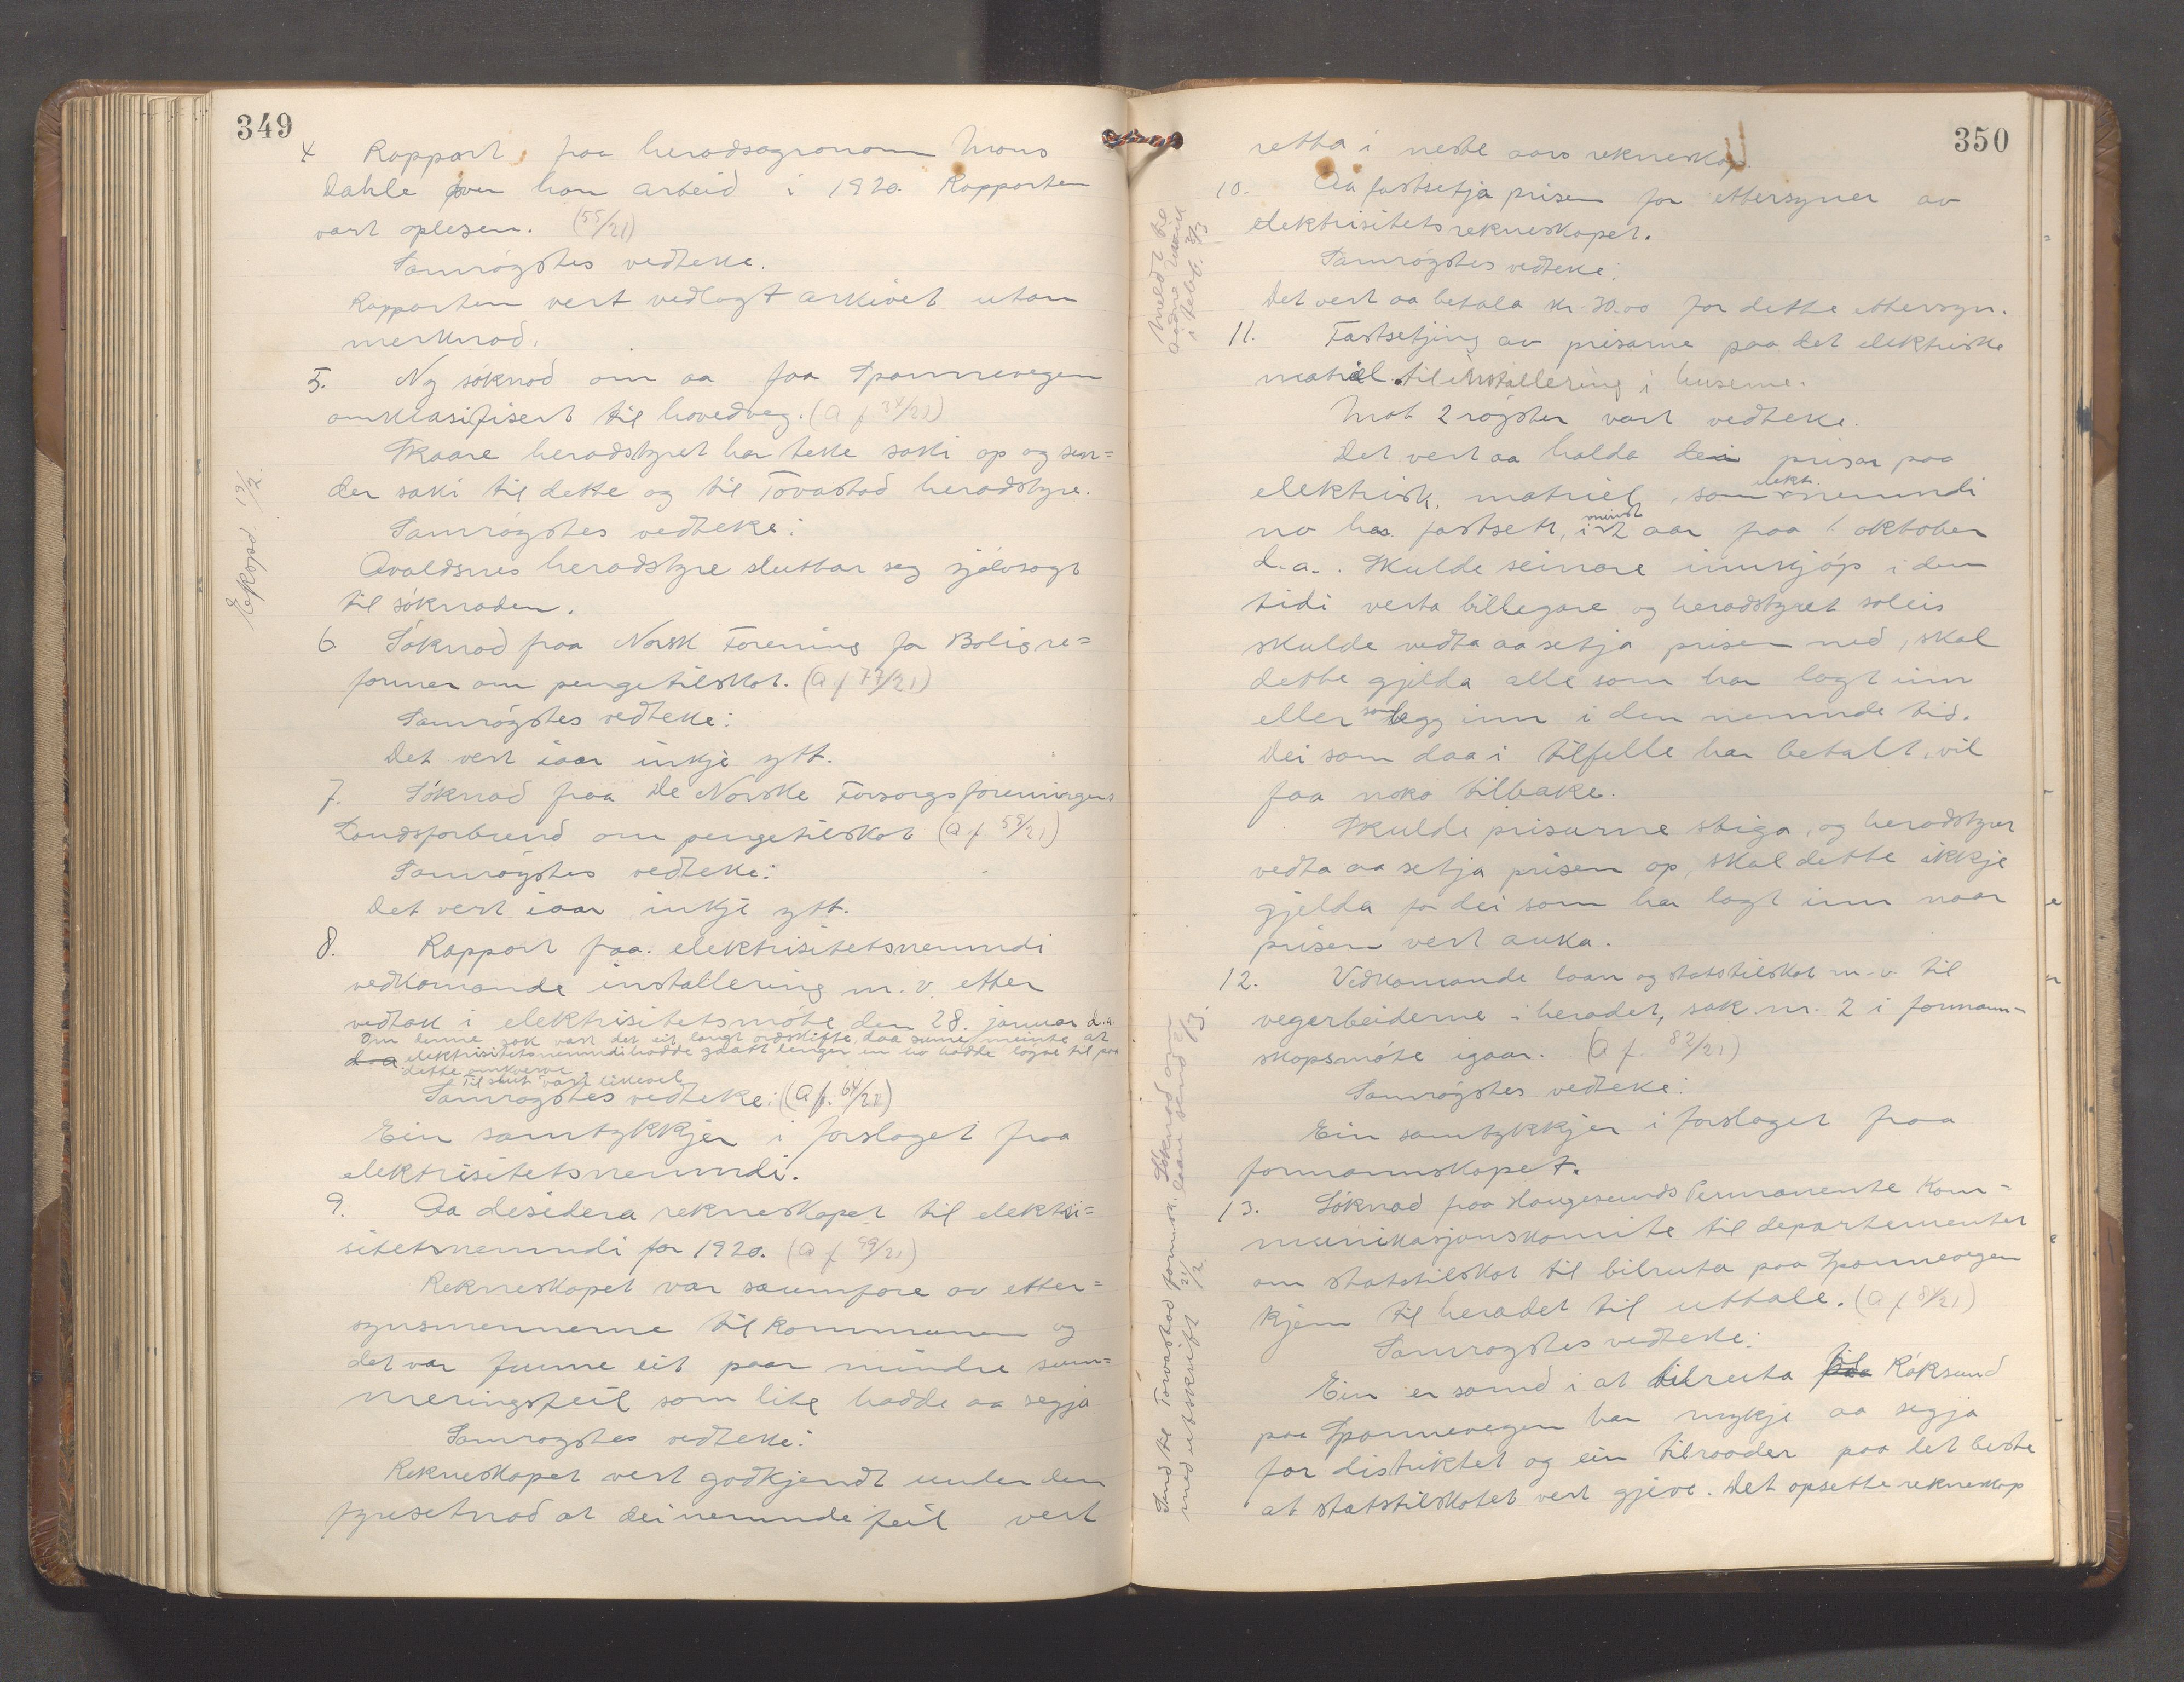 349
4 Rapport fraa heradsagronom Mons
Dahle yver han arbeid i 1920. Rapporten
vart oplesen. (55/21)
Samrøystes vedteke.
Rapporten vert vedlagt arkivet utan
merknad.
5. Ny søknad om aa faa Spannevegen
omklasifisert til hovedveg. (a f 34/21)
Skaare heradstyret har teke saki op og sen=
der saki til dette og til Torvastad heradstyre.
Samrøystes vedteke:
Avaldsnes heradstyre sluttar seg sjølvsagt
til søknaden.
Ekspd. 19/2.
6 Søknad fraa Norsk Forening for Boligre=
former om pengetilskot. (a f 77/21)
Samrøystes vedteke:
Det vert iaar inkje ytt.
7. Søknad fraa De Norske Forsorgsforeningers
Landsforbund om pengetilskot (a f 58/21)
Samrøystes vedteke:
Det vert iaar inkje ytt.
8. Rapport fraa elektrisitetsnemndi
vedkomande installering m. v. etter
vedtak i elektrisitetsmøte den 28. januar d.a
Om denne sak vart det eit langt ordskifte, daa sume meinte at
d.a. elektrisitetsnemndi hadde gaatt lenger en ho hadde lovae til paa
dette umkverve.
Til slut vart likevel
Samrøystes vedteke: (a f. 64/21)
Ein samtykkjer i forslaget fraa
elektrisitetsnemndi.
9. Aa desidera rekneskapet til elektri=
sitetsnemndi for 1920. (a f 99/21)
Rekneskapet var saumfare av etter=
synsmennerne til kommunen og
det var funne eit paar mindre sum=
meringsfeil som lite hadde aa segja
Samrøystes vedteke:
Rekneskapet vert godkjendt under den
fyresetnad at dei nemnde feil vert
350
retta i neste aars rekneskap.
10. Aa fastsetja prisen for ettersynet av
elektrisitetsrekneskapet.
Samrøystes vedteke:
Det vert aa betala kr. 30.00 for dette ettersyn.
11. Fastsetjing av prisarne paa det elektriske
matriel til installering i huserne.
Mot 2 røyster vart vedteke.
Det vert aa halda dei prisar paa
elektrisk matriel, som elekt. nemndi
no har fastsett, i minst 2 aar fraa 1 oktober
d.a.. Skulde seinare innkjøp i den
tidi verta billegare og heradstyret soleis
skulde vedta aa setja prisen ned, skal
dette gjelda alle som har lagt inn
eller som legg inn i den nemnde tid.
Dei som daa i tilfelle har betalt, vil
faa noko tilbake.
Skulde prisarne stiga, og heradstyret
vedta aa setja prisen op, skal dette ikkje
gjelda for dei som har lagt inn naar
prisen vert auka.
12. Vedkomande laan og statstilskot m. v. til
vegarbeiderne i heradet, sak nr. 2 i formann-
skapsmøte igaar. (a f. 82/21)
Samrøystes vedteke:
Ein samtykkjer i forslaget fraa
formannskapet.
Søknad om
laan send 2/3.
13. Søknad fraa Haugesunds Permanente Kom-
munikasjonskomite til departementet
om statstilskot til bilruta paa Spannevegen
kjem til heradet til uttale. (a f 84/21)
Samrøystes vedteke:
Ein er samd i at bilruta paa til Røksund
paa Spannevegen har mykje aa segja
for distriktet og ein tilraader paa det beste
at statstilskotet vert gjeve. Det opsette rekneskap
Send til Torvastad formsk.
med utskrift 21/2.